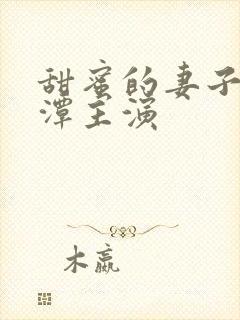 甜蜜的妻子
潭主演
木嬴